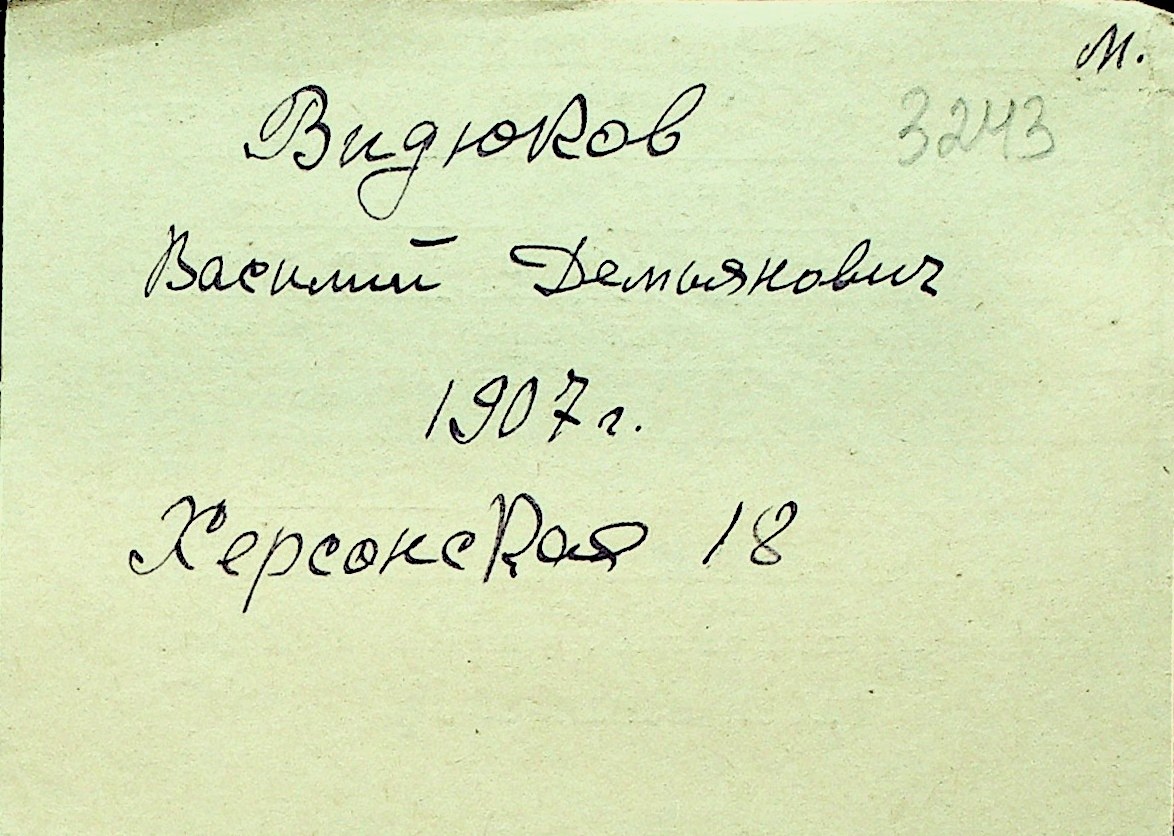 М.
Видюков 3243
Василий Демьянович
1907 г.
Херсонская 18